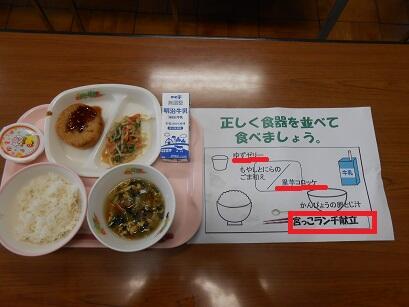 明治牛乳
正しく食器を並べて
食べましょう。
ゆずゼリー
もやしとにらの
ごま和え
牛乳
里芋コロッケ
かんぴょうの卵とじ汁
宮っこランチ献立